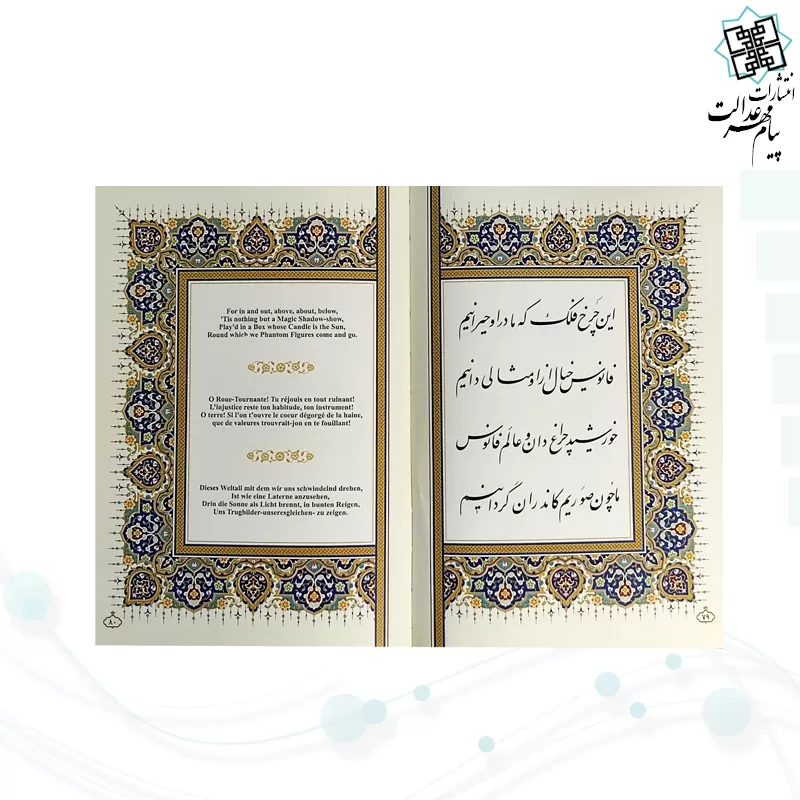 انتشارات
پیام مهر عدالت
این چرخ فلک که ما در او حیرانیم
فانوس خیال از او مثالی دانیم
خورشید چراغ دان و عالم فانوس
ما چون صوریم کاندر آن گردانیم
۷۹
For in and out, above, about, below,
'Tis nothing but a Magic Shadow-show,
Play'd in a Box whose Candle is the Sun,
Round which we Phantom Figures come and go.
O Roue-Tournante! Tu réjouis en tout ruinant!
L'injustice reste ton habitude, ton instrument!
O terre! Si l'on t'ouvre le coeur dégorgé de la haine,
que de valeures trouvrait-jon en te fouillant!
Dieses Weltall mit dem wir uns schwindeind drehen,
Ist wie eine Laterne anzusehen,
Drin die Sonne als Licht brennt, in bunten Reigen,
Uns Trugbilder-unseresgleichen- zu zeigen.
۸۰